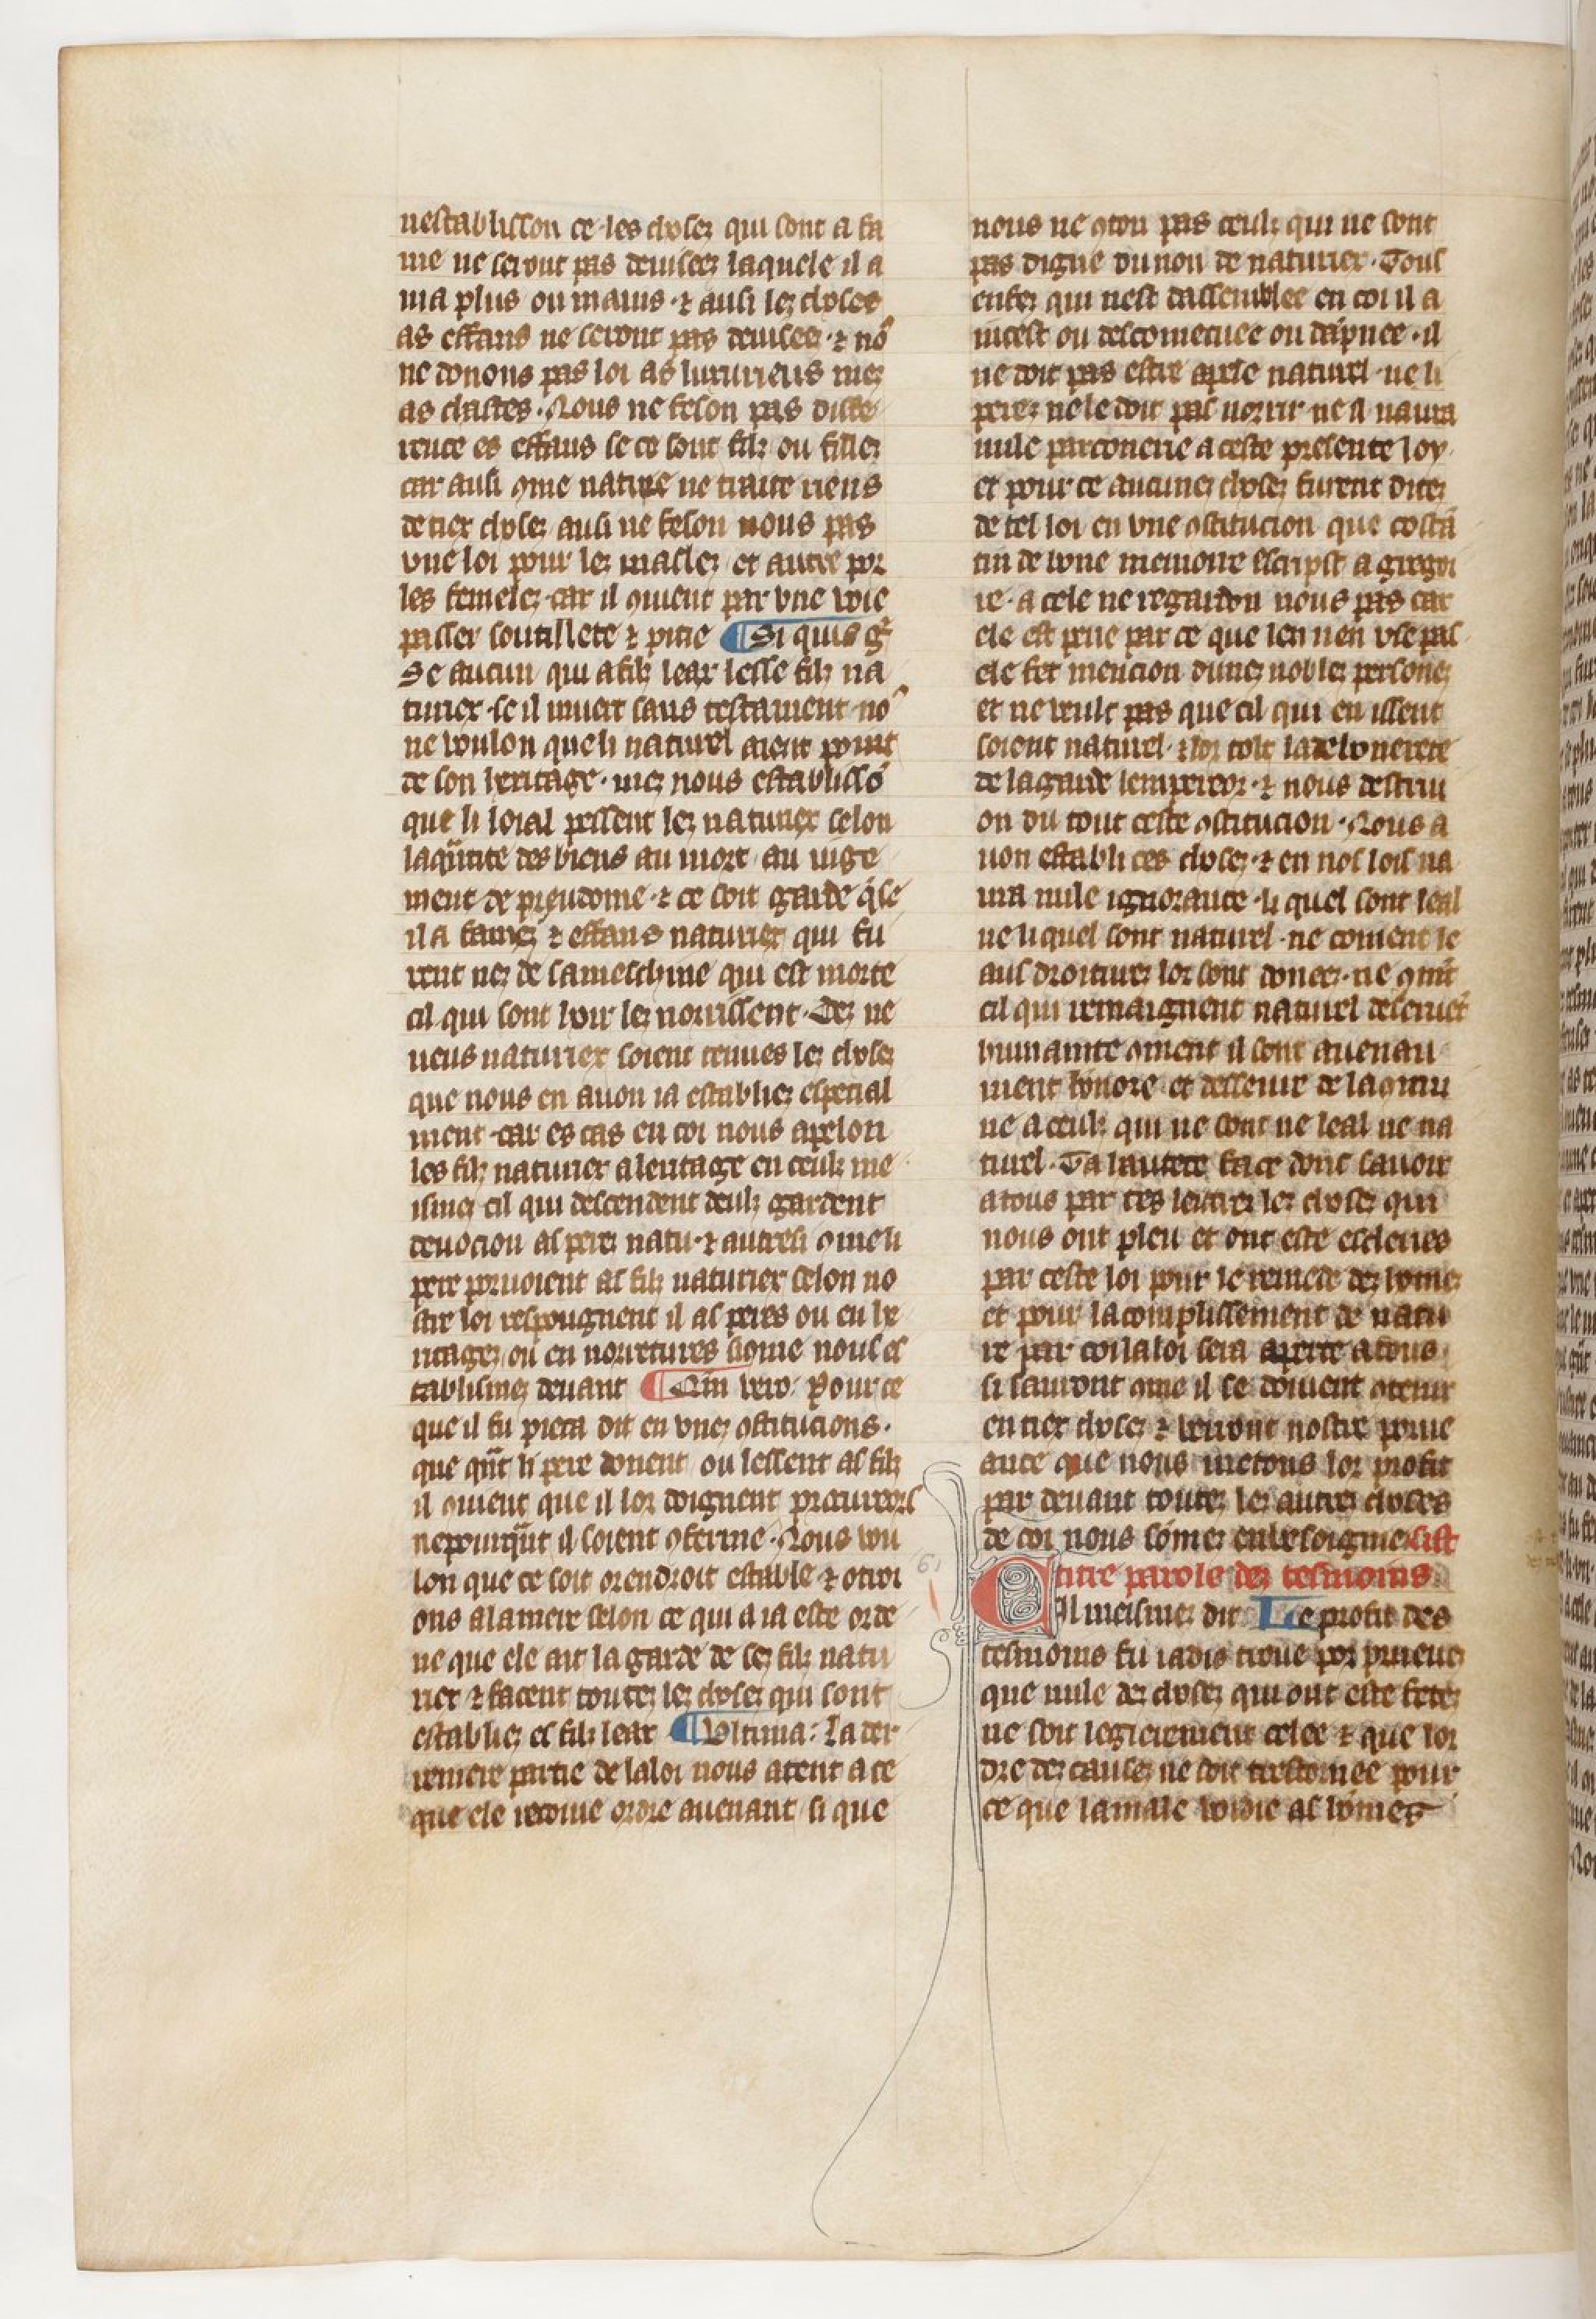 nestablisson ce les choses qui sont a fa
me ne seront pas deuisees laquele il a
ma plus ou mains · ⁊ ausi les choses
as effans ne seront pas deuisees · ⁊ nō
ne donons pas loi as luxurieus mes
as chastes · Nous ne feson pas diffe
rence es effans se ce sont filz ou filles
car ausi ɔme nature ne traite riens
de tiex choses ausi ne feson nous pas
vne loi pour les masles et autre por
les femeles car il ɔuient par vne voie
passer soutillete ⁊ pitie ¶ Si quis g̃
Se aucun qui a filz leax lesse filz na
turiex se il muert sans testament nō
ne voulon que li naturel aient point
de son heritage · mes nous establissō
que li loial pessent les naturiex selon
laq̃ntite des biens au mort au iuge
ment de preudome · ⁊ ce soit garde q̃ se
il a fames ⁊ effans naturiex qui fu
rent nes de sa meschine qui est morte
cil qui sont hoir les norrissent · Des ne
ueus naturiex soient tenues les choses
que nous en auon ia establies especial
ment car es cas en coi nous apelon
les filz naturiex a leritage en ceulz me
ismes cil qui descendent deulz gardent
deuocion as peres natu · ⁊ autresi ɔme li
pere poruoient as filz naturiex selon no
stre loi respoignent il as peres ou en he
ritages ou en norretures si ɔme nous es
tablismes deuant ¶ Qm̄ vero · Pour ce
que il fu pieca dit en vnes ɔstitucions ·
que q̃nt li pere donent ou lessent as filz
il ɔuient que il lor doignent procureors
nepourq̃nt il soient ɔferme · Nous vou
lon que ce soit orendroit estable ⁊ otroi
ons a la mere selon ce qui a ia este orde
ne que ele ait la garde de ses filz natu
riex ⁊ facent toutes les choses qui sont
establies es filz leax ¶ Vltima : La der
reniere partie de la loi nous atent a ce
que ele recoiue ordre auenant si que
nous ne ɔton pas ceulz qui ne sont
pas digne du non de naturiex · Tous
enfes qui nest dassemblee en coi il a
incest ou descomenuee ou dāpnee · il
ne doit pas estre apele naturel ne li
peres ne le doit pas norrir ne il naura
nule parconerie a ceste presente loy
et pour ce aucunes choses furent dites
de tel loi en vne ɔstitucion que costā
tin de bone memoire escript a gregoi
re · a cele ne regardon nous pas car
ele est perie par ce que len nen vse pas
ele fet mencion dunes nobles persones
et ne veult pas que cil qui en issent
soient naturel · ⁊ lor tolt la debonerete
de la garde lempereor · ⁊ nous destrui
on du tout ceste ɔstitucion · Nous a
uon establi ces choses · ⁊ en nos lois na
ura nule ignorance · li quel sont leal
ne li quel sont naturel · ne coment le
aus droitures lor sont donees · ne ɔm̄t
cil qui remaignent naturel deseruēt
humainte ɔment il sont auenau
ment honore et desseure de la ɔmu
ne a ceulz qui ne sont ne leal ne na
turel · Ta hautece face dont sauoir
a tous par tes lettres les choses qui
nous ont pleu et ont este escleries
par ceste loi pour le remede des homes
et pour lacomplissement de natu
re par coi la loi sera aperte a tous
si sauront ɔme il se doiuent ɔtenir
en tiex choses ⁊ verront nostre porue
ance que nous metons lor profit
par deuant toutes les autres choses
de coi nous sōmes enbesoignie · Cist
titre parole des tesmoins
Cil meismes dit Le profit des
tesmoins fu iadis troue por prueue
que nule des choses qui ont este fetes
ne soit legierement celee ⁊ que lor
dre des causes ne soit trestornee pour
ce que la male voidie as homes